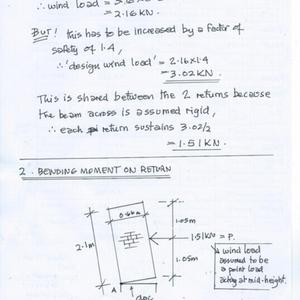 ∴ wind load =
= 2.16 KN.
BUT! this has to be increased by a factor of
safety of 1.4,
∴ 'design wind load' = 2.16 x 1.4
= 3.02 KN.
This is shared between the 2 returns because
the beam across is assumed rigid,
∴ each return sustains 3.02/2
= 1.51 KN.
2. BENDING MOMENT ON RETURN
0.66m
1.05m
2.1m
1.51KN = P.
1.05m
wind load
assumed to be
a point load
acting at mid-height.
A